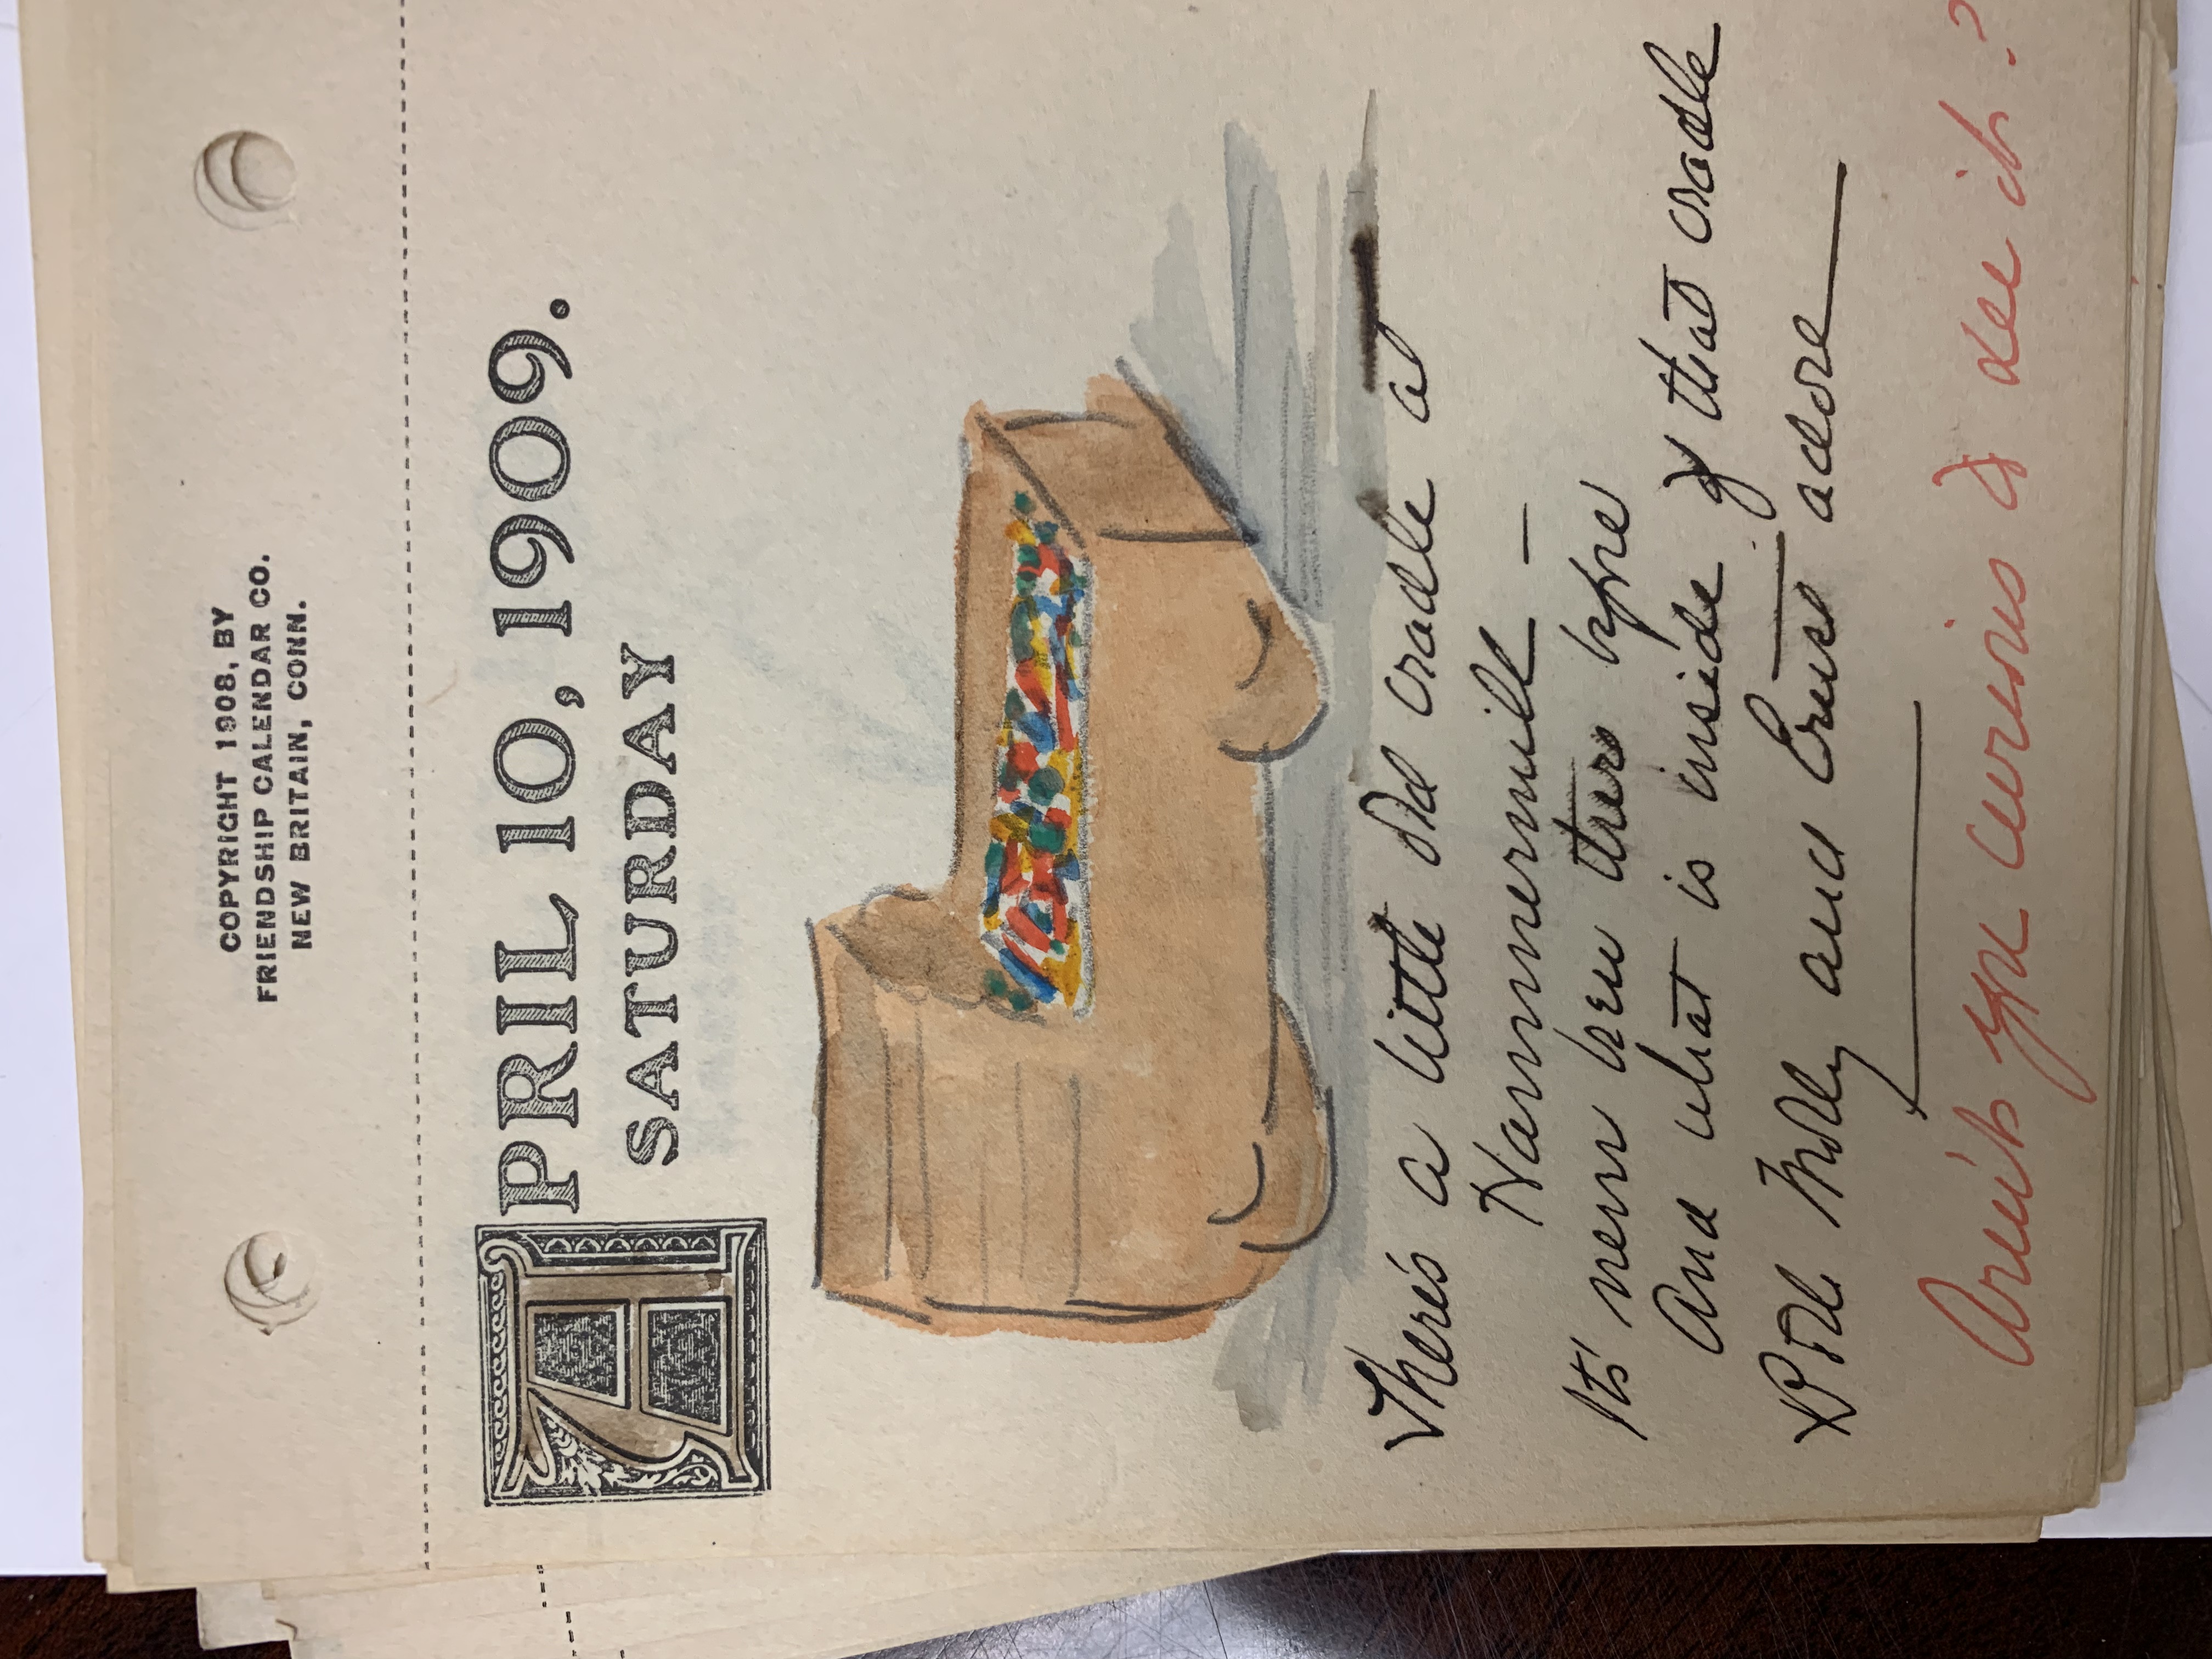 COPYRIGHT 1908, BY
FRIENDSHIP CALENDAR CO.
NEW BRITAIN, CONN.
APRIL 10, 1909.
SATURDAY
There's a little old cradle at
Hammermill —
It's never been there before
And what is inside of that cradle
Both Molly and Ernst adore
Aren't you curious to see it?